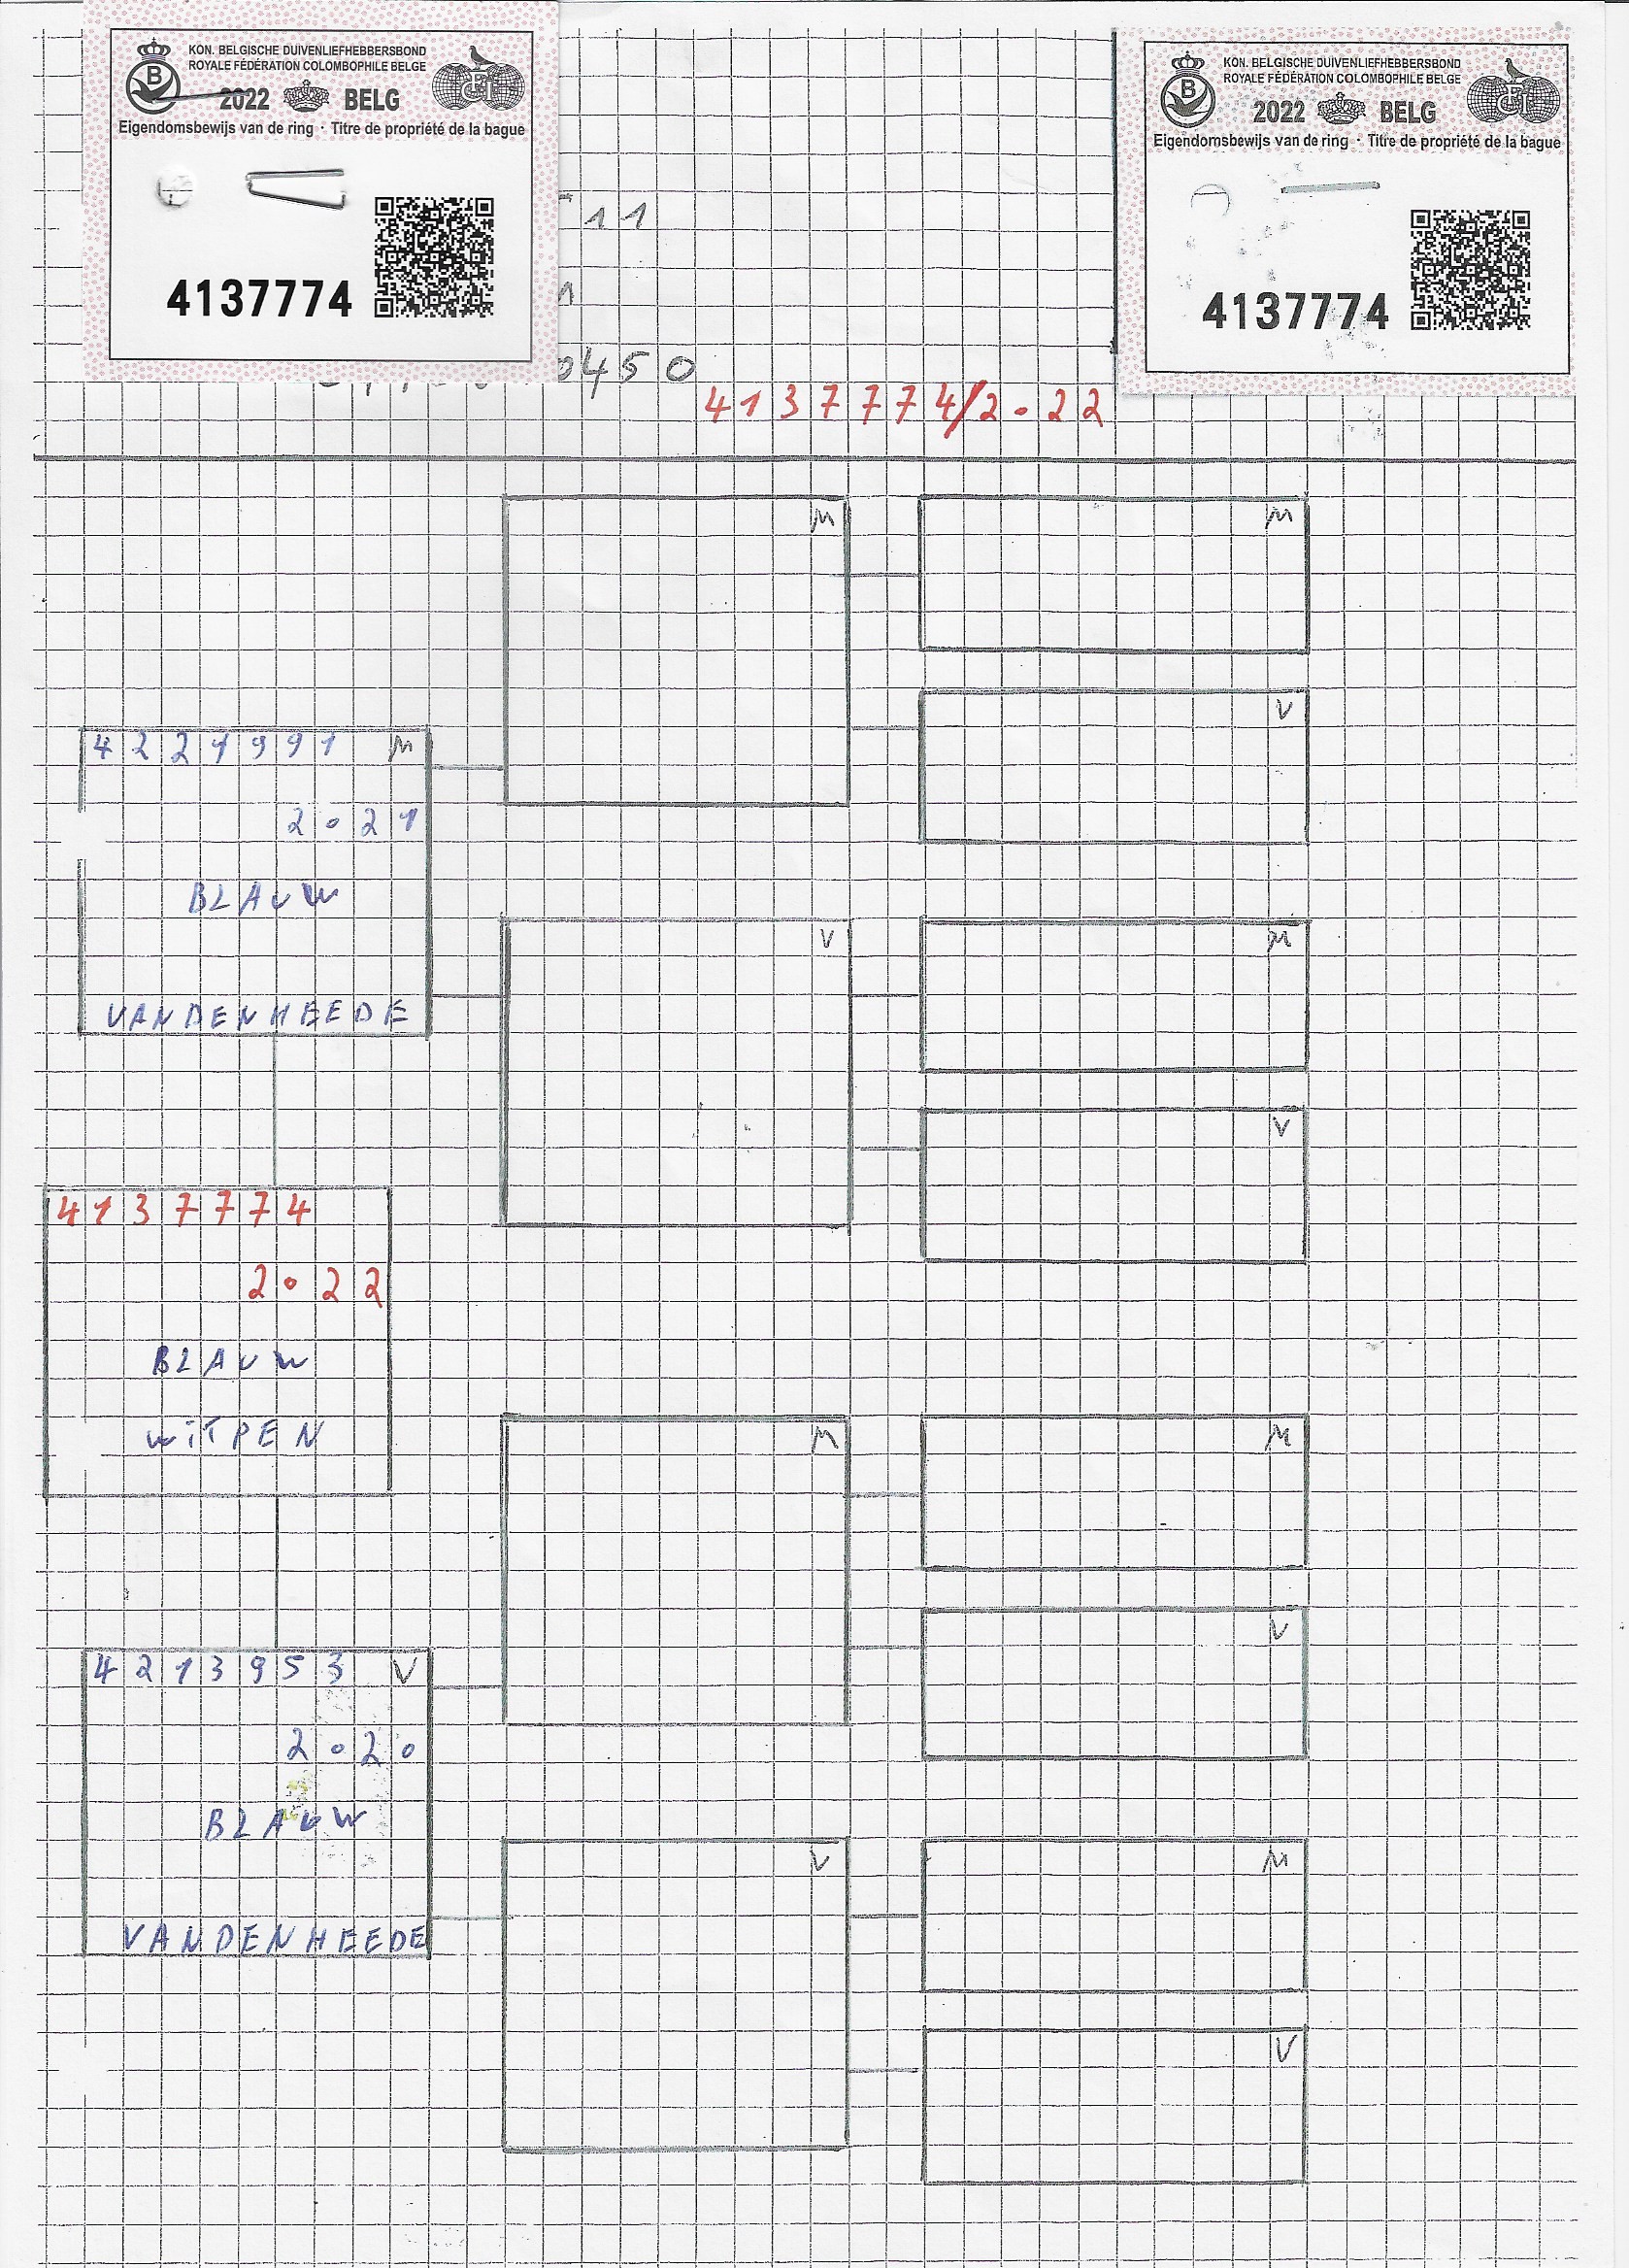 KON. BELGISCHE DUIVENLIEFHEBBERSBOND
ROYALE FÉDÉRATION COLOMBOPHILE BELGE
B
2022 BELG
FCI
Eigendomsbewijs van de ring · Titre de propriété de la bague
4137774
KON. BELGISCHE DUIVENLIEFHEBBERSBOND
ROYALE FÉDÉRATION COLOMBOPHILE BELGE
B
2022 BELG
FCI
Eigendomsbewijs van de ring · Titre de propriété de la bague
4137774
11
0450
4137774/2.22
M
M
V
4221991 M
2.21
BLAUW
VANDENHEEDE
V
M
V
4137774
2.22
BLAUW
WITPEN
M
M
V
4213953 V
2.20
BLAUW
VANDENHEEDE
V
M
V